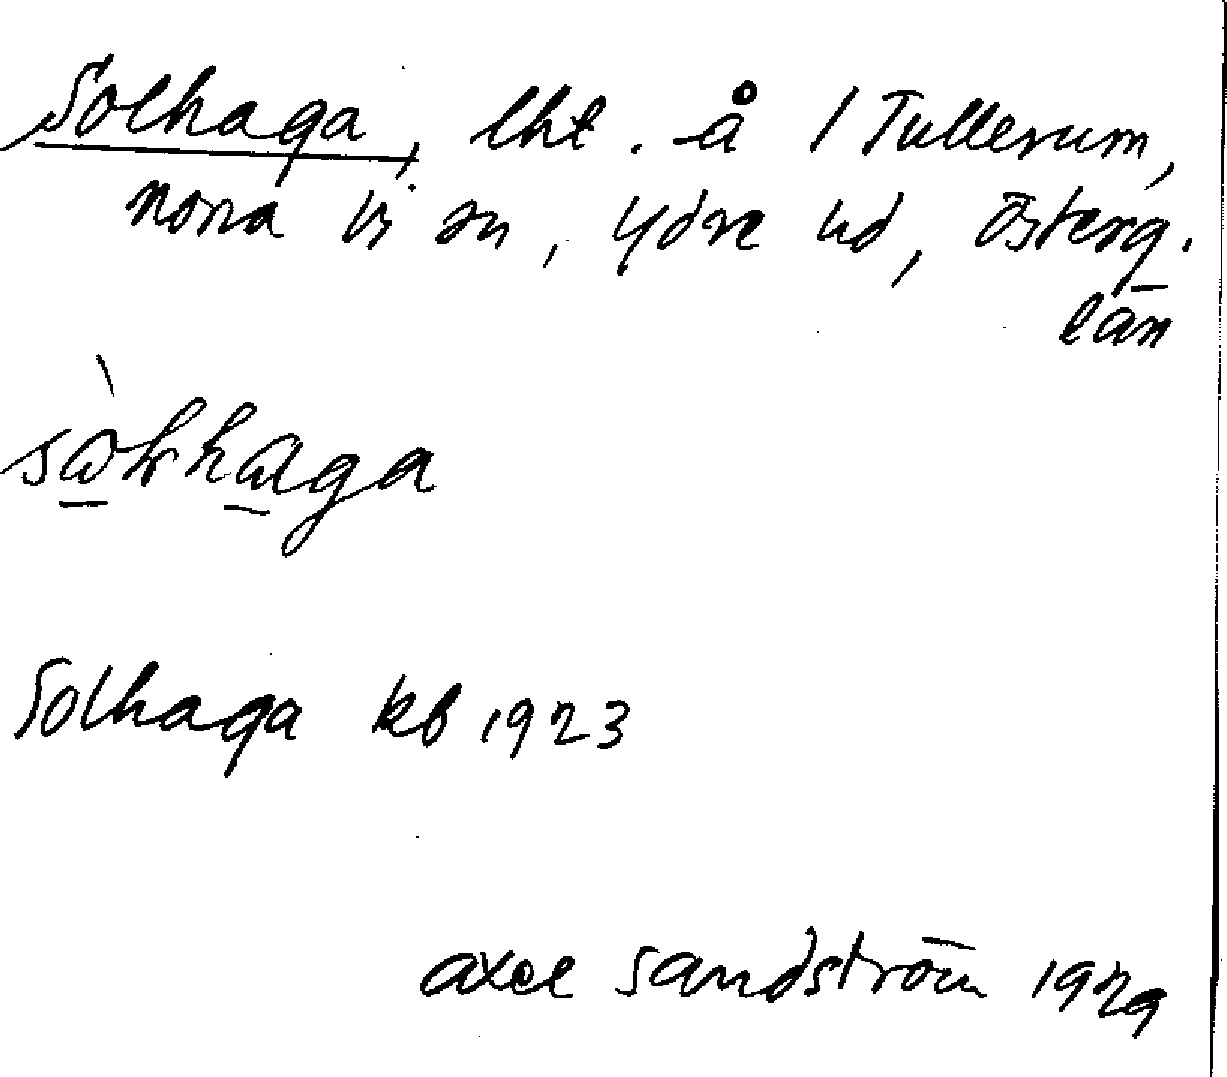 Solhaga, lht. å 1 Tullerum,
norra vi sn, ydre hd, österg.
län
Solhaga kb 1923
axel sandström 1929